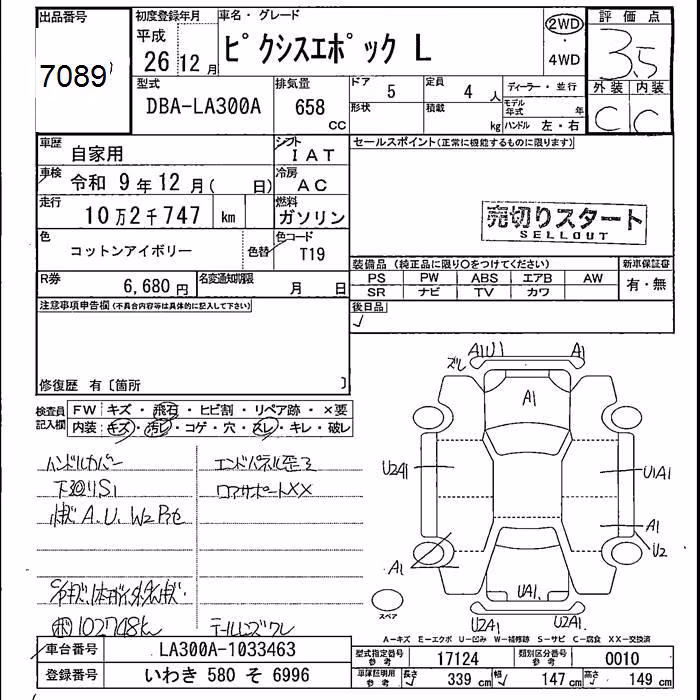 出品番号 初度登録年月 車名・グレード 評価点
7089 平成 26年12月 ピクシスエポック L 2WD・4WD 3.5
型式 排気量 ドア 5 定員 4人 ディーラー・並行 外装 内装
DBA-LA300A 658 CC 形状 積載 kg モデル年式 年 ハンドル 左・右 C C
車歴 自家用 シフト IAT セールスポイント(正常に機能するものに限ります)
車検 令和 9年12月( 日) 冷房 AC
走行 10万2千747 km 燃料 ガソリン 売切りスタート
SELLOUT
色 コットンアイボリー 色替 色コード T19
装備品 (純正品に限り○をつけてください) 新車保証書
R券 6,680円 名変通知期限 月 日 PS PW ABS エアB AW 有・無
SR ナビ TV カワ
注意事項申告欄(不具合内容等は具体的に記入して下さい) 後日品
修復歴 有〔箇所 〕
検査員記入欄 FW キズ・飛石・ヒビ割・リペア跡・×要
内装 キズ・汚れ・コゲ・穴・スレ・キレ・破レ
ハンドルカバー エンドパネル歪ミ
下廻りS1 ロアサポートXX
A.U.W2
102748km テールレンズワレ
ズレ A1U1 A1
A1
U2A1 U1A1
A1 A1 U2
UA1
スペア U2A1 U2A1
A-キズ E-エクボ U-凹み W-補修跡 S-サビ C-腐食 XX-交換済
車台番号 LA300A-1033463 型式指定番号 参考 17124 類別区分番号 参考 0010
登録番号 いわき 580 そ 6996 車庫証明用 参考 長さ 339 cm 幅 147 cm 高さ 149 cm